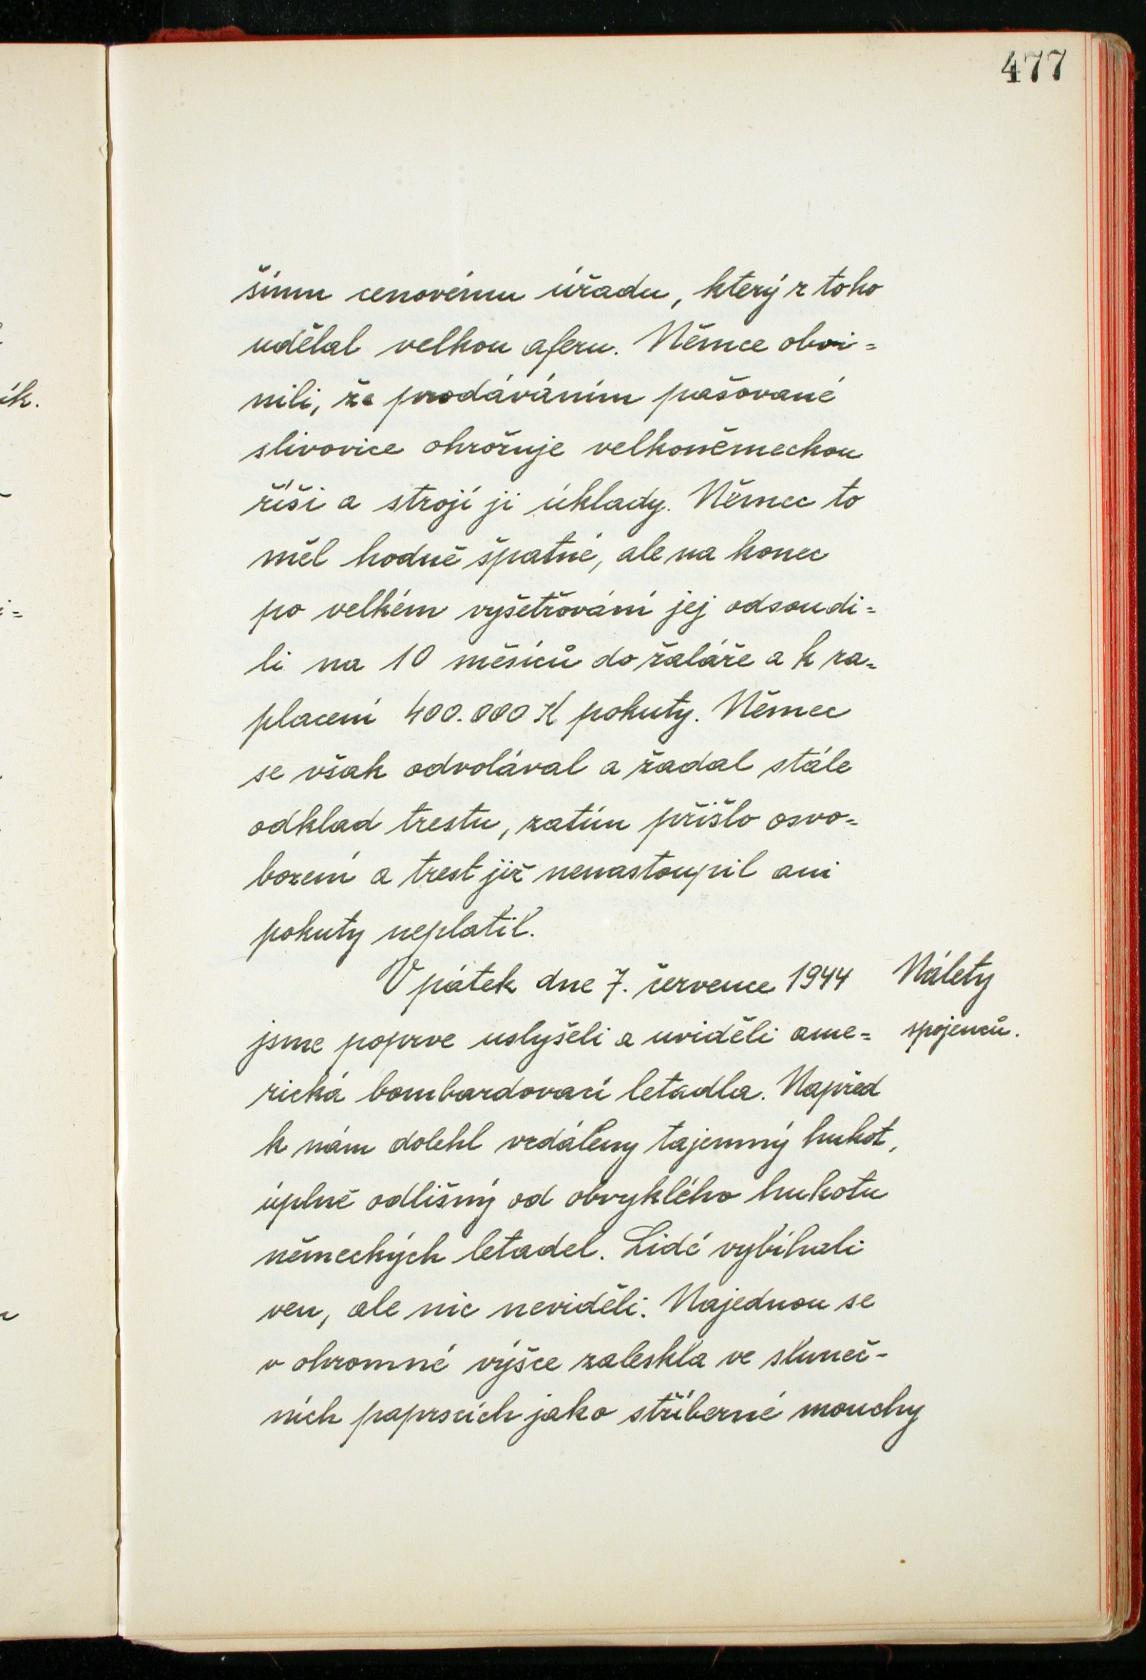 477
šímu cenovému úřadu, který z toho
udělal velkou aferu. Němce obvi=
nili, že prodáváním pašované
slivovice ohrožuje velkoněmeckou
říši a strojí ji úklady. Němec to
měl hodně špatné, ale na konec
po velkém vyšetřování jej odsoudi=
li na 10 měsíců do žaláře a k za=
placení 400.000 K pokuty. Němec
se však odvolával a žádal stále
odklad trestu, zatím přišlo osvo=
bození a trest již nenastoupil ani
pokuty neplatil.
V pátek dne 7. července 1944
Nálety
jsme poprve uslyšeli a uviděli ame=
spojenců.
rická bombardovací letadla. Napřed
k nám dolehl vzdálený tajemný hukot,
úplně odlišný od obvyklého hukotu
německých letadel. Lidé vybíhali
ven, ale nic neviděli. Najednou se
v ohromné výšce zaleskla ve sluneč-
ních paprscích jako stříberné mouchy
ík.
i=